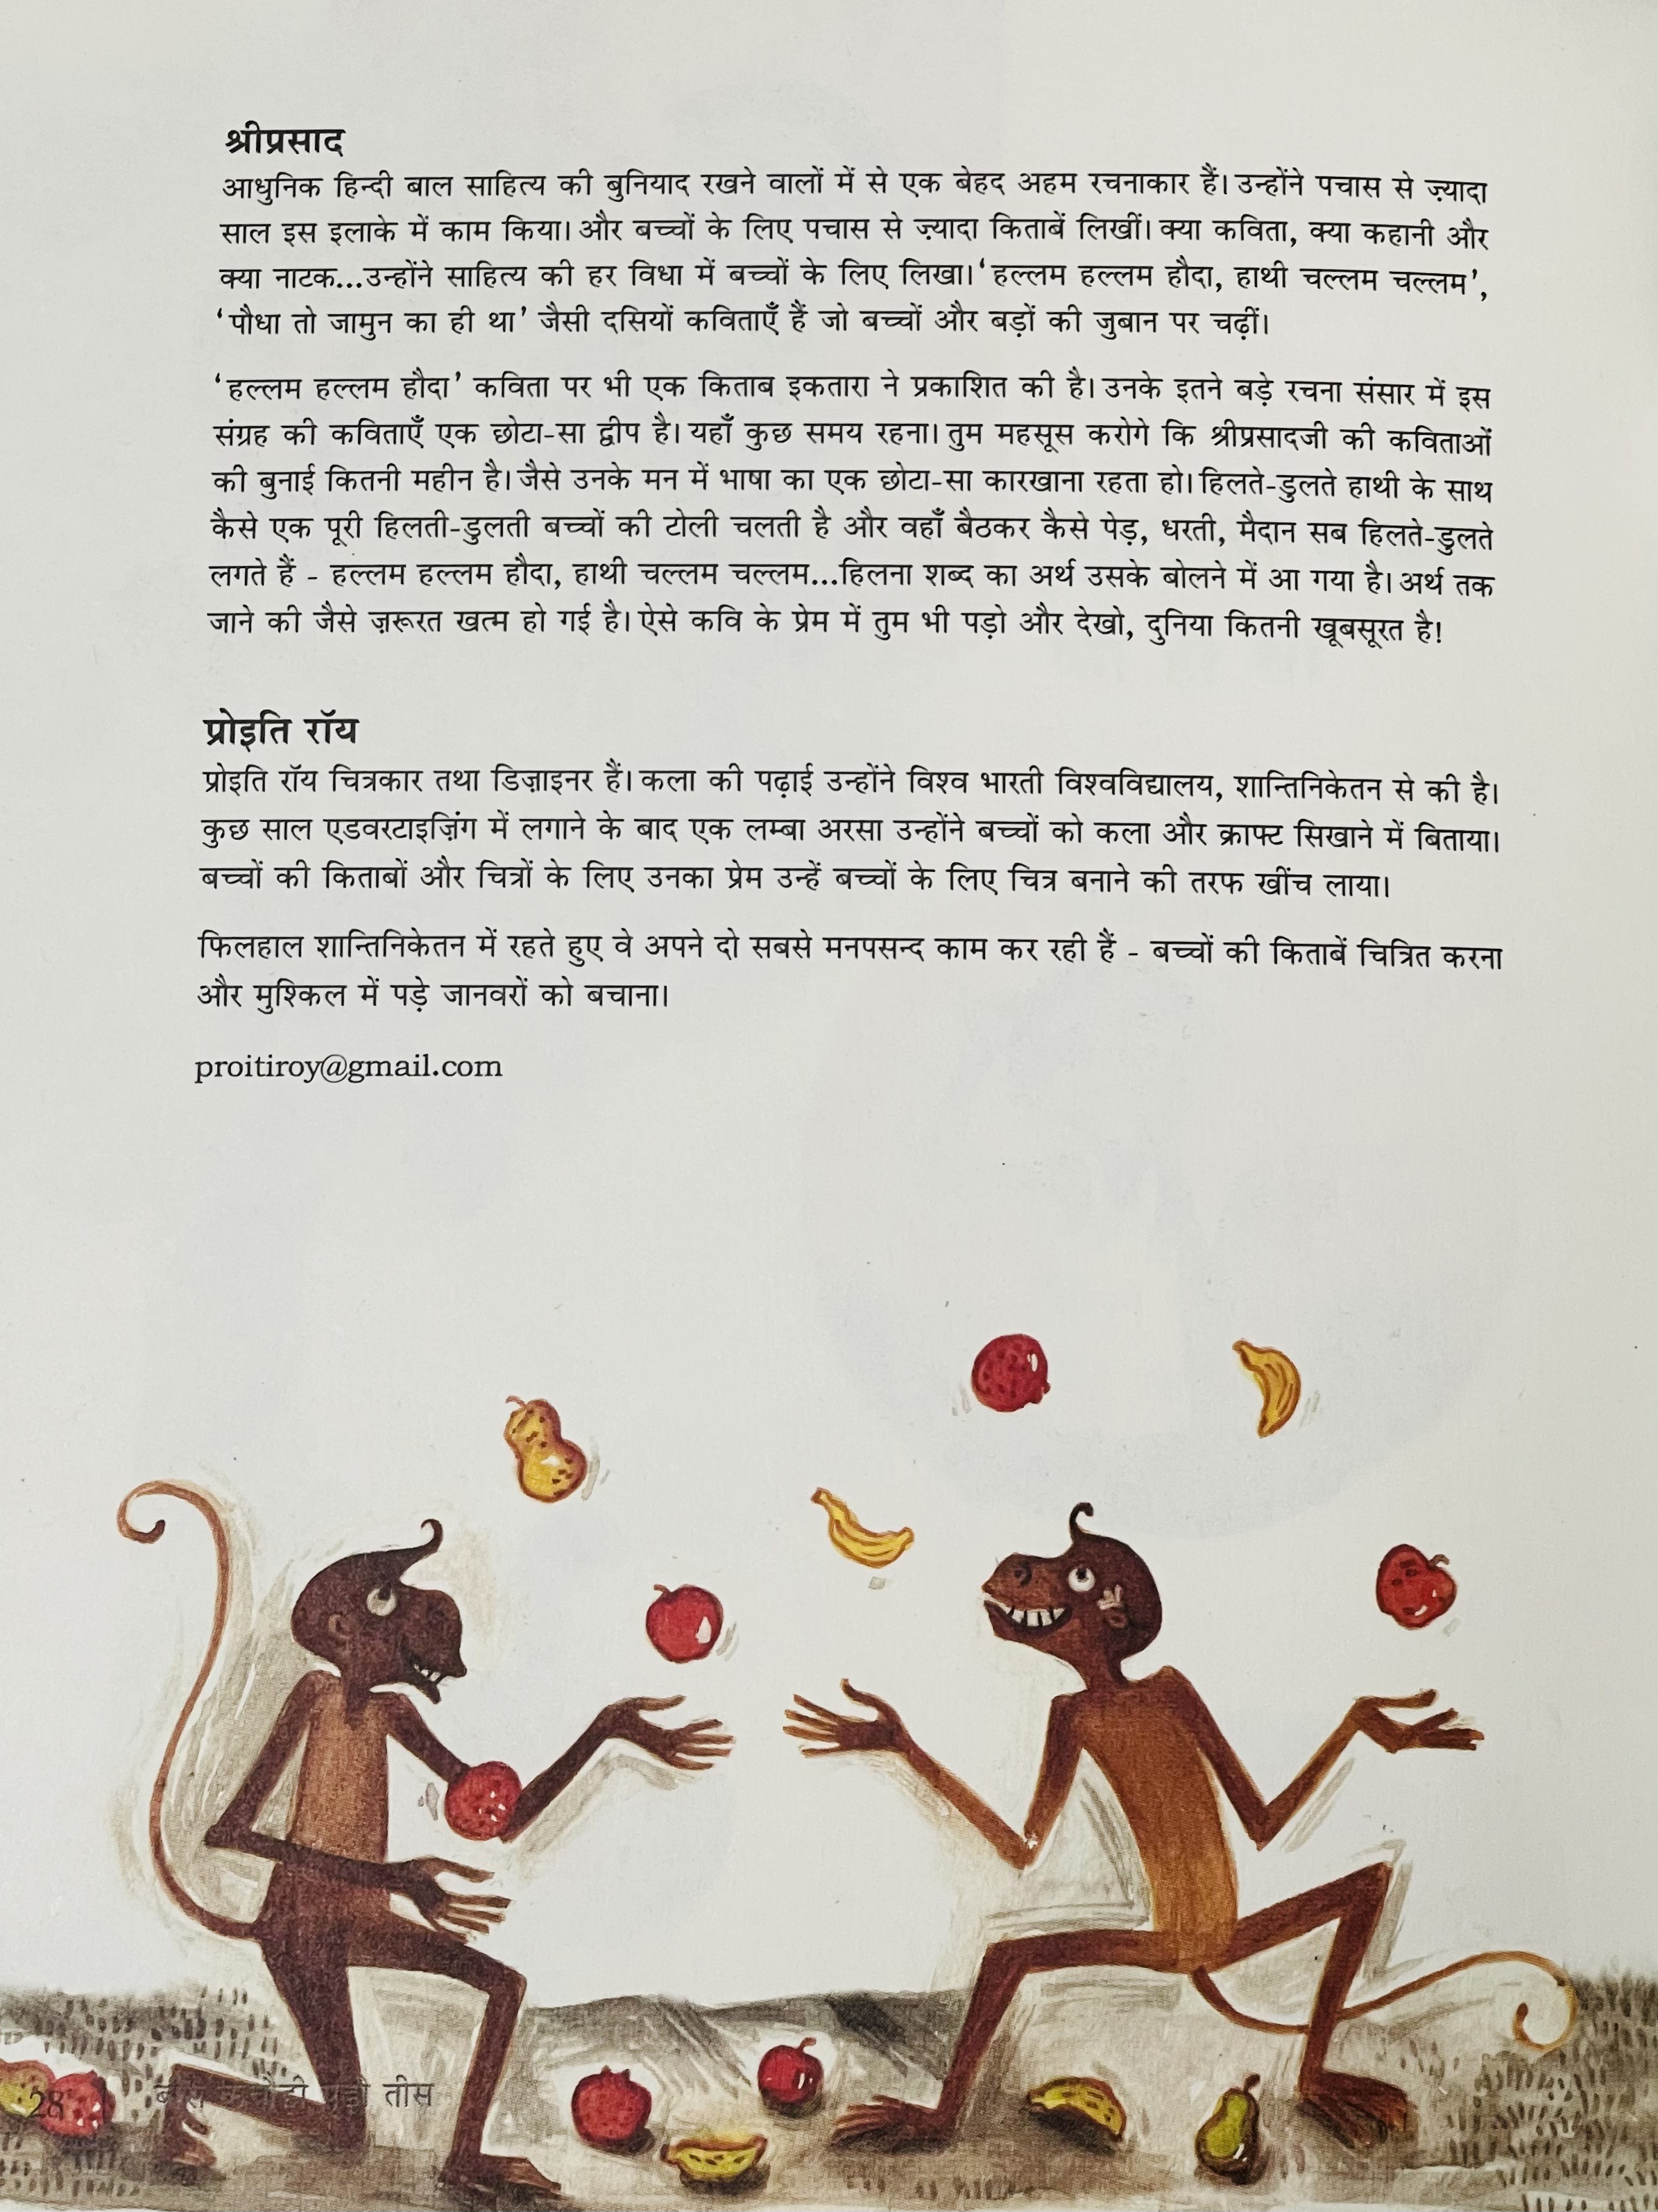 श्रीप्रसाद
आधुनिक हिन्दी बाल साहित्य की बुनियाद रखने वालों में से एक बेहद अहम रचनाकार हैं। उन्होंने पचास से ज़्यादा
साल इस इलाके में काम किया। और बच्चों के लिए पचास से ज़्यादा किताबें लिखीं। क्या कविता, क्या कहानी और
क्या नाटक...उन्होंने साहित्य की हर विधा में बच्चों के लिए लिखा। ‘हल्लम हल्लम हौदा, हाथी चल्लम चल्लम’,
‘पौधा तो जामुन का ही था’ जैसी दसियों कविताएँ हैं जो बच्चों और बड़ों की जुबान पर चढ़ीं।
‘हल्लम हल्लम हौदा’ कविता पर भी एक किताब इकतारा ने प्रकाशित की है। उनके इतने बड़े रचना संसार में इस
संग्रह की कविताएँ एक छोटा-सा द्वीप है। यहाँ कुछ समय रहना। तुम महसूस करोगे कि श्रीप्रसादजी की कविताओं
की बुनाई कितनी महीन है। जैसे उनके मन में भाषा का एक छोटा-सा कारखाना रहता हो। हिलते-डुलते हाथी के साथ
कैसे एक पूरी हिलती-डुलती बच्चों की टोली चलती है और वहाँ बैठकर कैसे पेड़, धरती, मैदान सब हिलते-डुलते
लगते हैं - हल्लम हल्लम हौदा, हाथी चल्लम चल्लम...हिलना शब्द का अर्थ उसके बोलने में आ गया है। अर्थ तक
जाने की जैसे ज़रूरत खत्म हो गई है। ऐसे कवि के प्रेम में तुम भी पड़ो और देखो, दुनिया कितनी खूबसूरत है!
प्रोइति रॉय
प्रोइति रॉय चित्रकार तथा डिज़ाइनर हैं। कला की पढ़ाई उन्होंने विश्व भारती विश्वविद्यालय, शान्तिनिकेतन से की है।
कुछ साल एडवरटाइज़िंग में लगाने के बाद एक लम्बा अरसा उन्होंने बच्चों को कला और क्राफ्ट सिखाने में बिताया।
बच्चों की किताबों और चित्रों के लिए उनका प्रेम उन्हें बच्चों के लिए चित्र बनाने की तरफ खींच लाया।
फिलहाल शान्तिनिकेतन में रहते हुए वे अपने दो सबसे मनपसन्द काम कर रही हैं - बच्चों की किताबें चित्रित करना
और मुश्किल में पड़े जानवरों को बचाना।
proitiroy@gmail.com
28 तीस